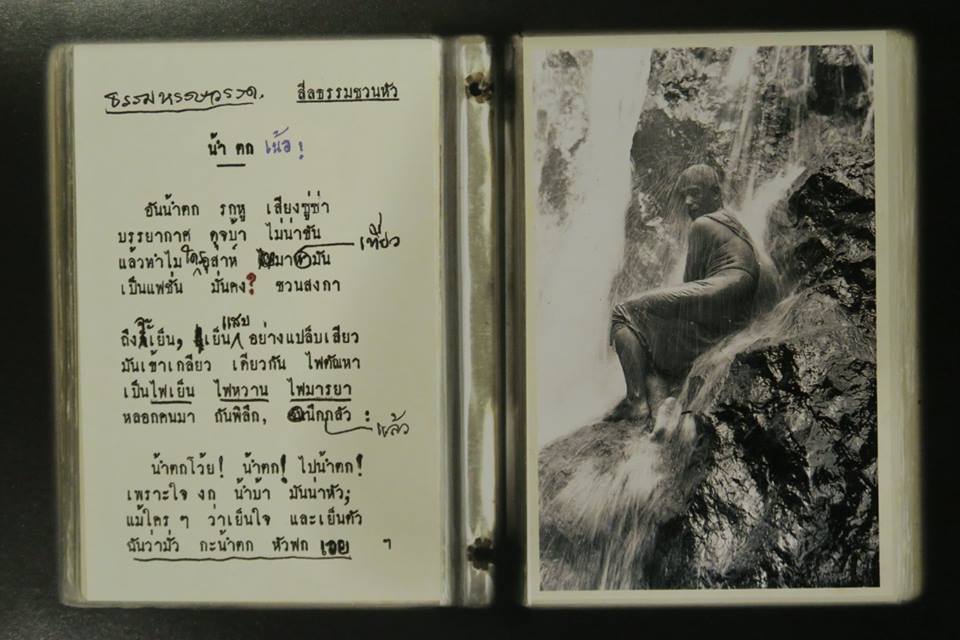 ธรรมหรรษวรรค. ศีลธรรมชวนหัว
น้ำ ตก เน้อ!
อันน้ำตก รกหู เสียงซู่ซ่า
บรรยากาศ ดุจบ้า ไม่น่าขัน
แล้วทำไม ใคร อุสาห์ มา มัน เที่ยว
เป็นแฟชั่น มั่นคง? ชวนสงกา
ถึง เย็น, เย็น แสบ อย่างแปล็บเสียว
มันเข้าเกลียว เดียวกัน ไฟตัณหา
เป็นไฟเย็น ไฟหวาน ไฟมารยา
หลอกคนมา กันพิลึก, นึกกลัว : แล้ว
น้ำตกโว้ย! น้ำตก! ไปน้ำตก!
เพราะใจ งก น้ำบ้า มันน่าหัว;
แม้ใคร ๆ ว่าเย็นใจ และเย็นตัว
ฉันว่ามั่ว กะน้ำตก หัวฟก เอย ฯ